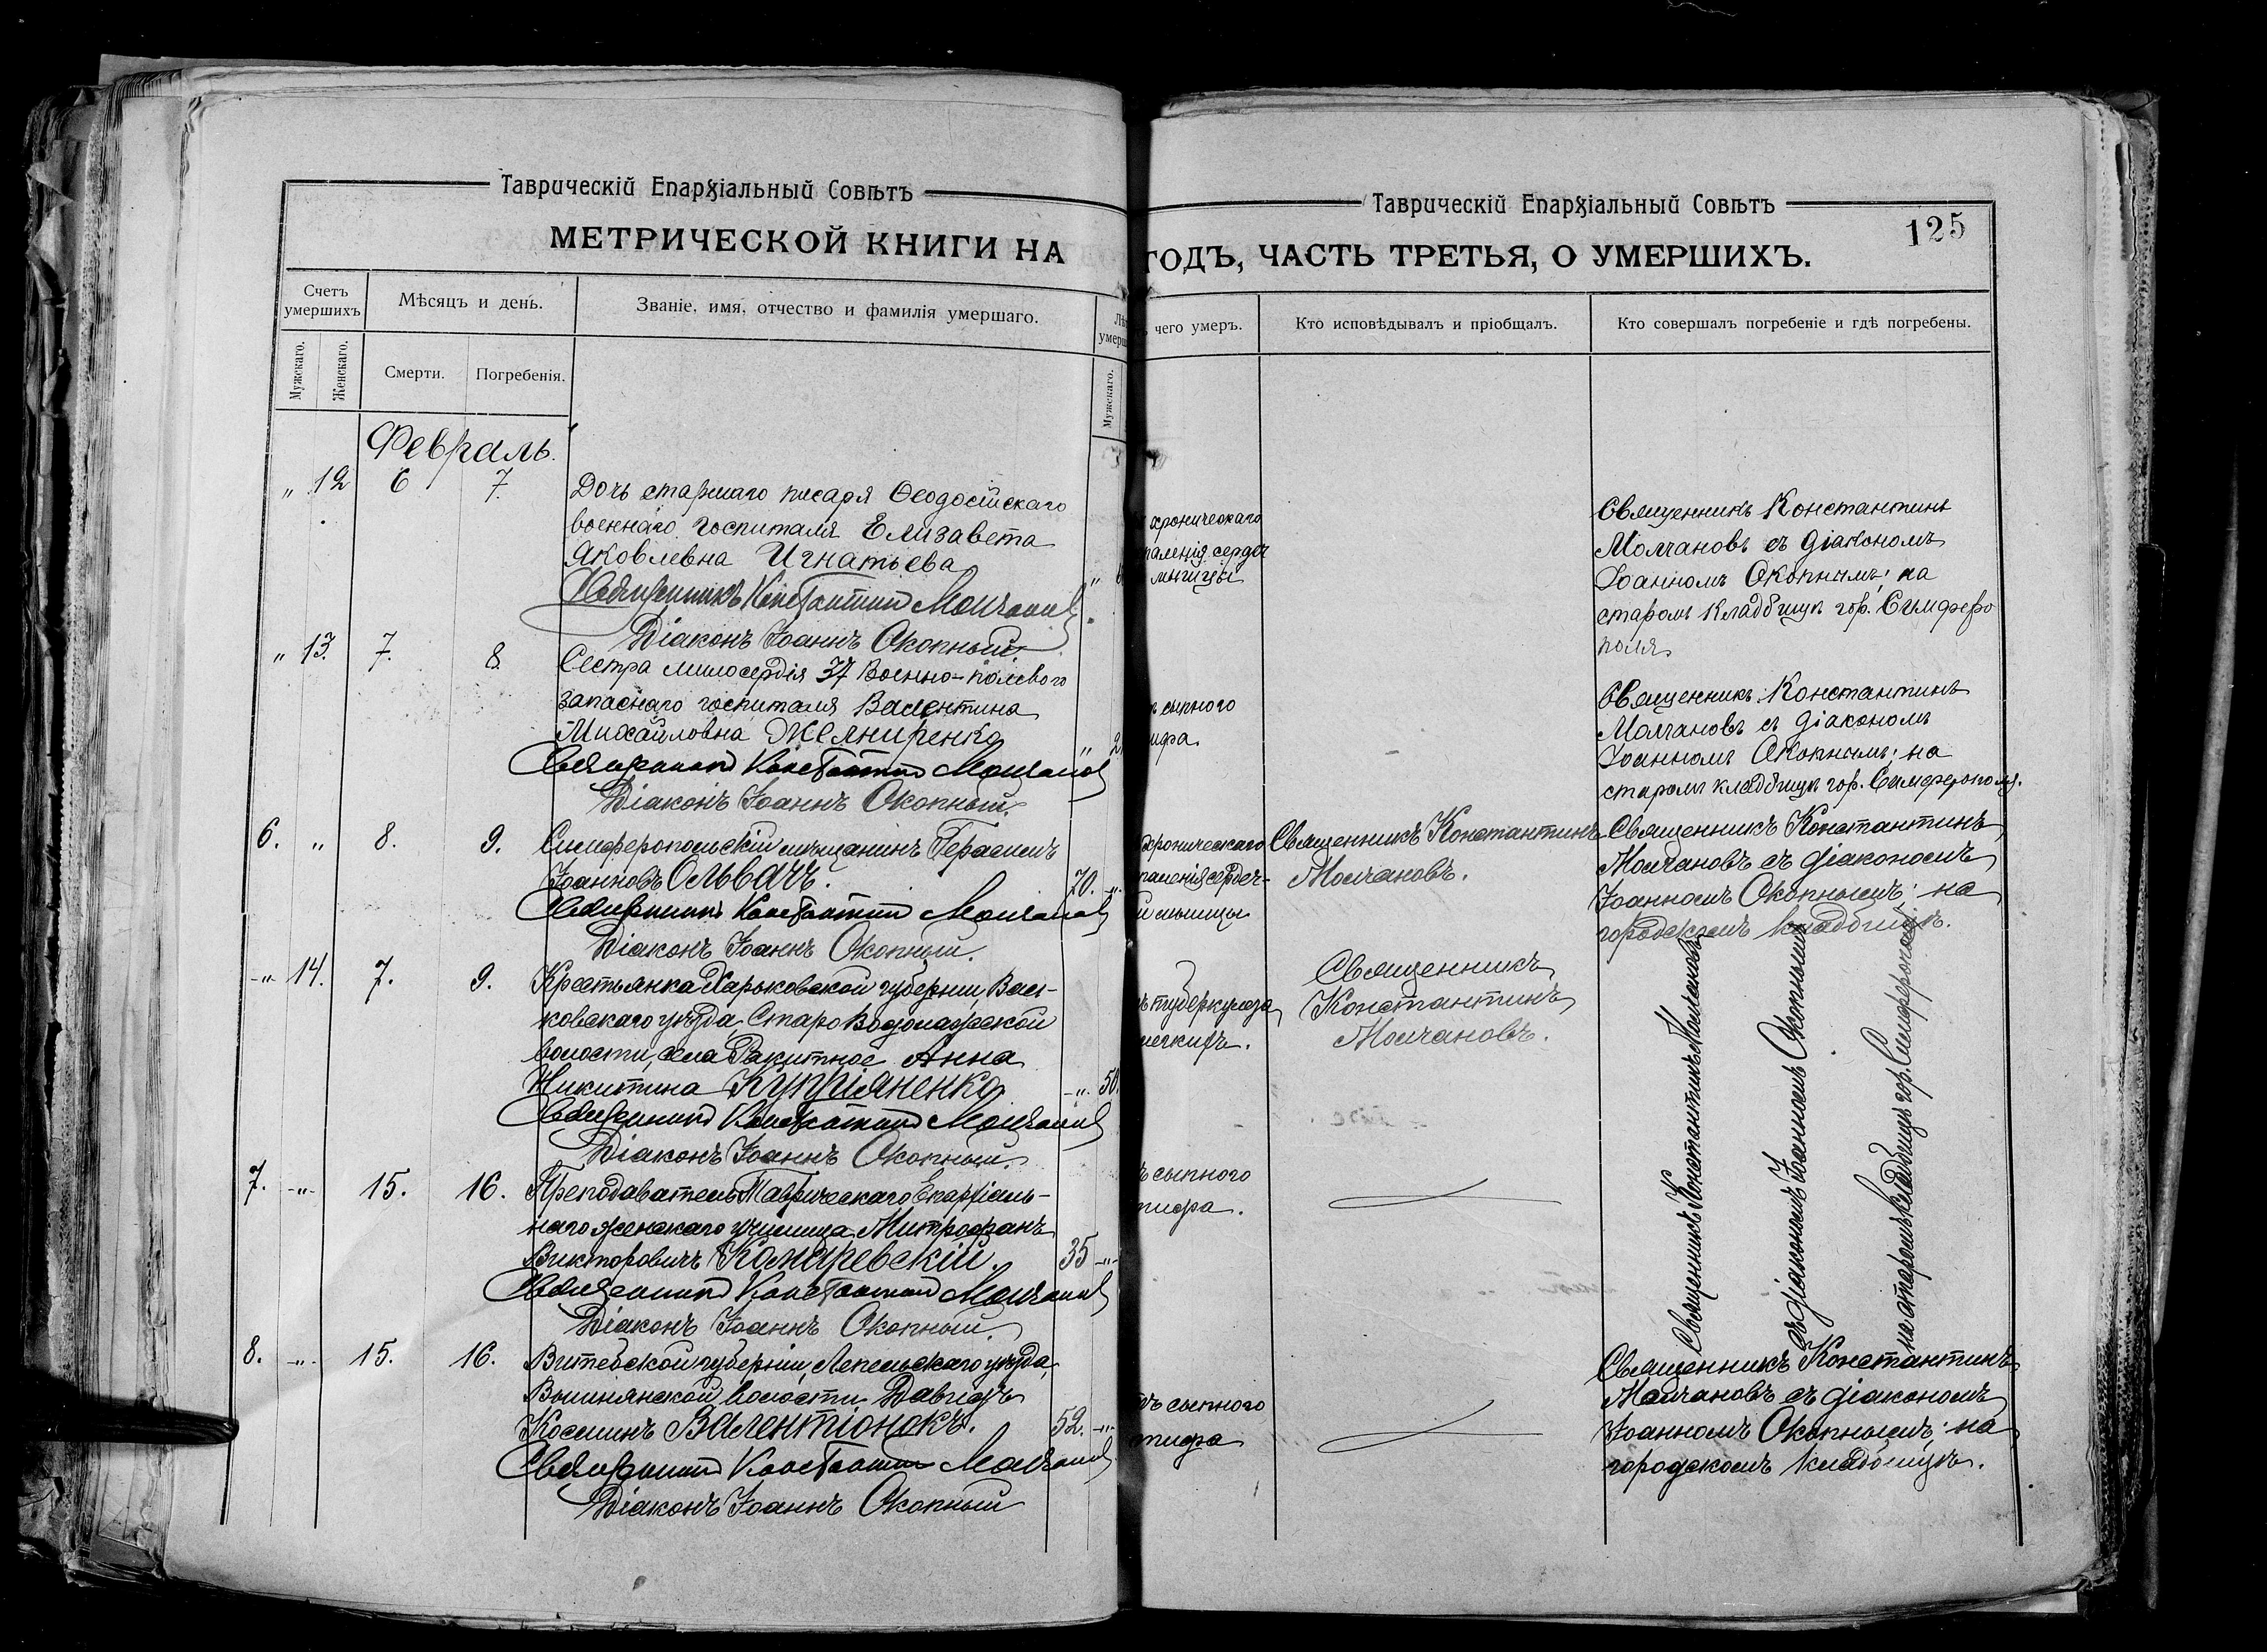 Таврическій Епархіальный Совѣтъ
МЕТРИЧЕСКОЙ КНИГИ НА
Счетъ умершихъ
Мѣсяцъ и день.
Званіе, имя, отчество и фамилія умершаго.
Мужскаго.
Женскаго.
Смерти.
Погребенія.
Мужскаго.
Февраль.
" 12 6 7.
Дочь старшаго писаря Ѳеодосійскаго
военнаго госпиталя Елизавета
Яковлевна Игнатьева
Священникъ Константинъ Молчановъ
Діаконъ Іоаннъ Окопный
" 13. 7. 8.
Сестра милосердія 37 Военно-полевого
запаснаго госпиталя Валентина
Михайловна
Священникъ Константинъ Молчановъ
Діаконъ Іоаннъ Окопный.
6. " 8. 9.
Симферопольскій мѣщанинъ Герасимъ
Іоанновъ Ольвачъ. 70. "
Священникъ Константинъ Молчановъ
Діаконъ Іоаннъ Окопный.
" 14. 7. 9.
Крестьянка Харьковской губерніи, Вал-
ковскаго уѣзда, Старо Водолажской
волости, села Ракитное Анна
Никитина " 50.
Священникъ Константинъ Молчановъ
Діаконъ Іоаннъ Окопный.
7. " 15. 16.
Преподаватель Таврическаго Епархіаль-
наго женскаго училища Митрофанъ
Викторовичъ 35 "
Священникъ Константинъ Молчановъ
Діаконъ Іоаннъ Окопный.
8. " 15. 16.
Витебской губерніи, Лепельскаго уѣзда,
волости Давидъ
Косминъ Валентіонокъ. 52. "
Священникъ Константинъ Молчановъ
Діаконъ Іоаннъ Окопный
Таврическій Епархіальный Совѣтъ
125
ГОДЪ, ЧАСТЬ ТРЕТЬЯ, О УМЕРШИХЪ.
чего умеръ.
Кто исповѣдывалъ и пріобщалъ.
Кто совершалъ погребеніе и гдѣ погребены.
хроническаго
паленія сердеч
мышцы
Священникъ Константинъ
Молчановъ съ діакономъ
Іоанномъ Окопнымъ; на
старомъ кладбищѣ гор. Симферо
поля.
сыпного
ифа.
Священникъ Константинъ
Молчановъ съ діакономъ
Іоанномъ Окопнымъ; на
старомъ кладбищѣ гор. Симферополя.
хроническаго
паленія сердеч-
й мышцы
Священникъ Константинъ
Молчановъ.
Священникъ Константинъ
Молчановъ съ діакономъ
Іоанномъ Окопнымъ; на
городскомъ кладбищѣ.
ъ туберкулеза
легкихъ.
Священникъ
Константинъ
Молчановъ.
ъ сыпного
тифа.
Священникъ Константинъ Молчановъ
съ діакономъ Іоанномъ Окопнымъ
на старомъ кладбищѣ гор. Симферополя
ъ сыпного
тифа
Священникъ Константинъ
Молчановъ съ діакономъ
Іоанномъ Окопнымъ; на
городскомъ кладбищѣ.